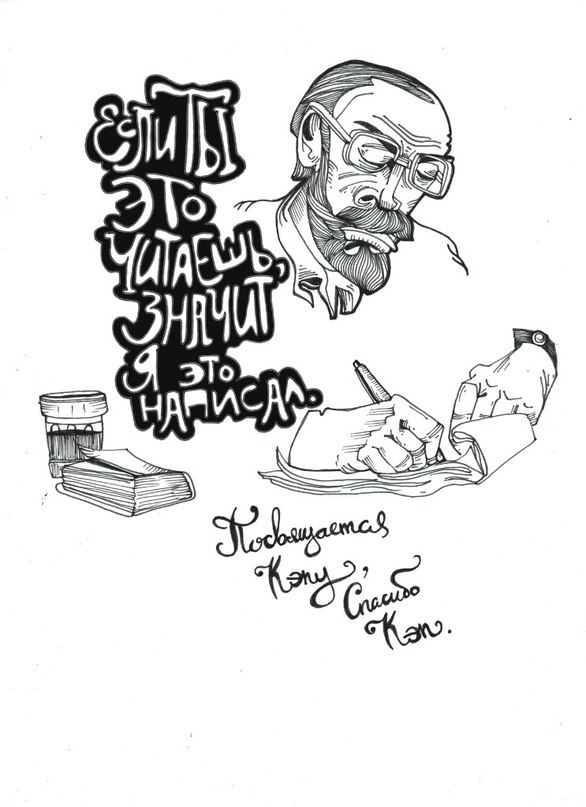 Если Ты
это
читаешь,
значит
я это
написал.
Посвящается
Кэпу,
Спасибо
Кэп.